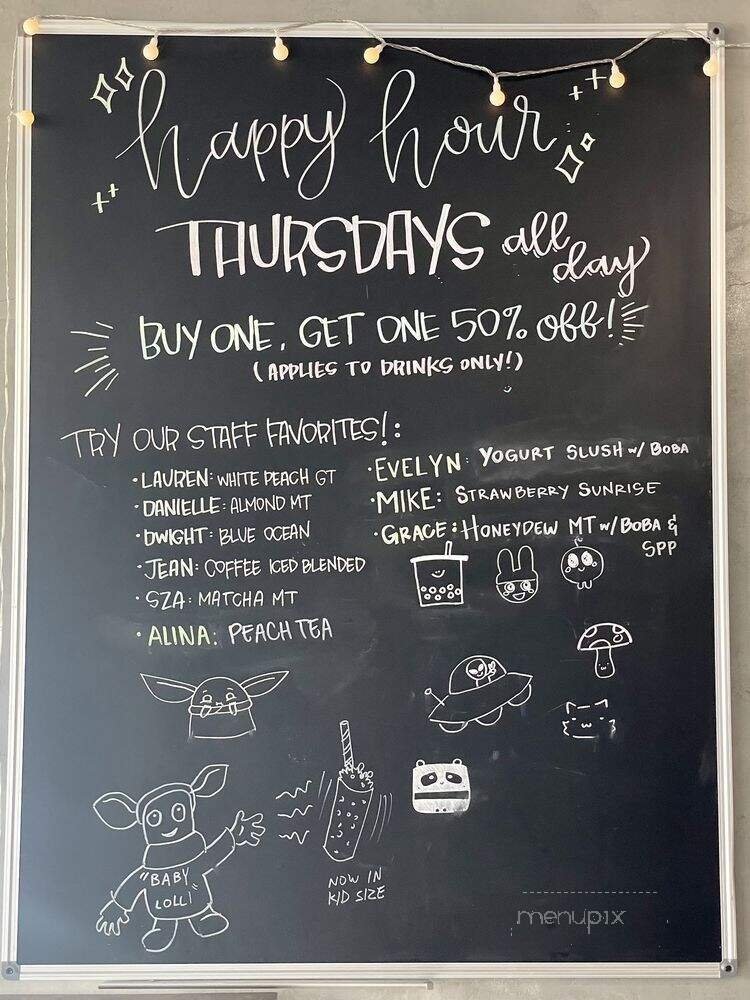 happy hour
THURSDAYS all day
BUY ONE, GET ONE 50% OFF!
(APPLIES TO DRINKS ONLY!)
TRY OUR STAFF FAVORITES!:
• LAUREN: WHITE PEACH GT
• DANIELLE: ALMOND MT
• DWIGHT: BLUE OCEAN
• JEAN: COFFEE ICED BLENDED
• SZA: MATCHA MT
• ALINA: PEACH TEA
• EVELYN: YOGURT SLUSH w/ BOBA
• MIKE: STRAWBERRY SUNRISE
• GRACE: HONEYDEW MT w/ BOBA &
SPP
"BABY
LOLLI
NOW IN
KID SIZE
menupix